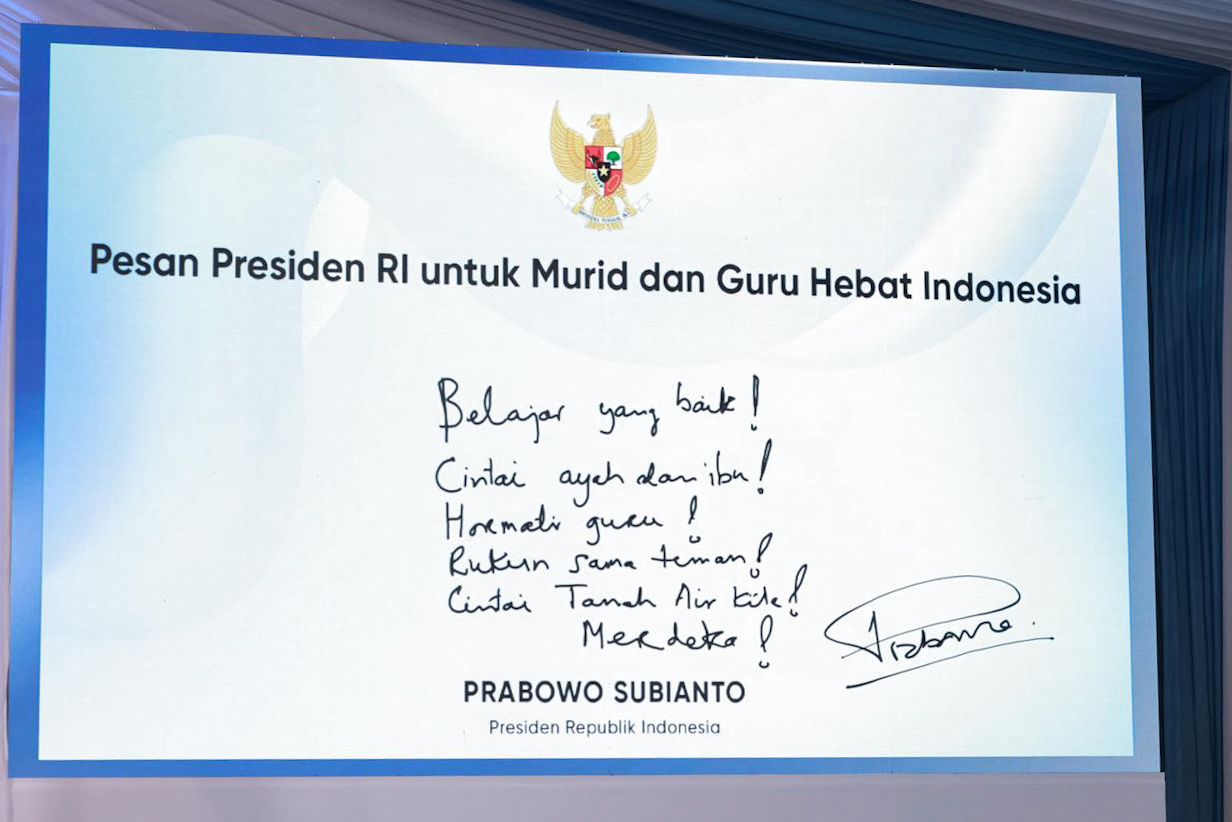 Pesan Presiden RI untuk Murid dan Guru Hebat Indonesia
Belajar yang baik!
Cintai ayah dan ibu!
Hormati guru!
Rukun sama teman!
Cintai Tanah Air kita!
Merdeka!
Prabowo
PRABOWO SUBIANTO
Presiden Republik Indonesia